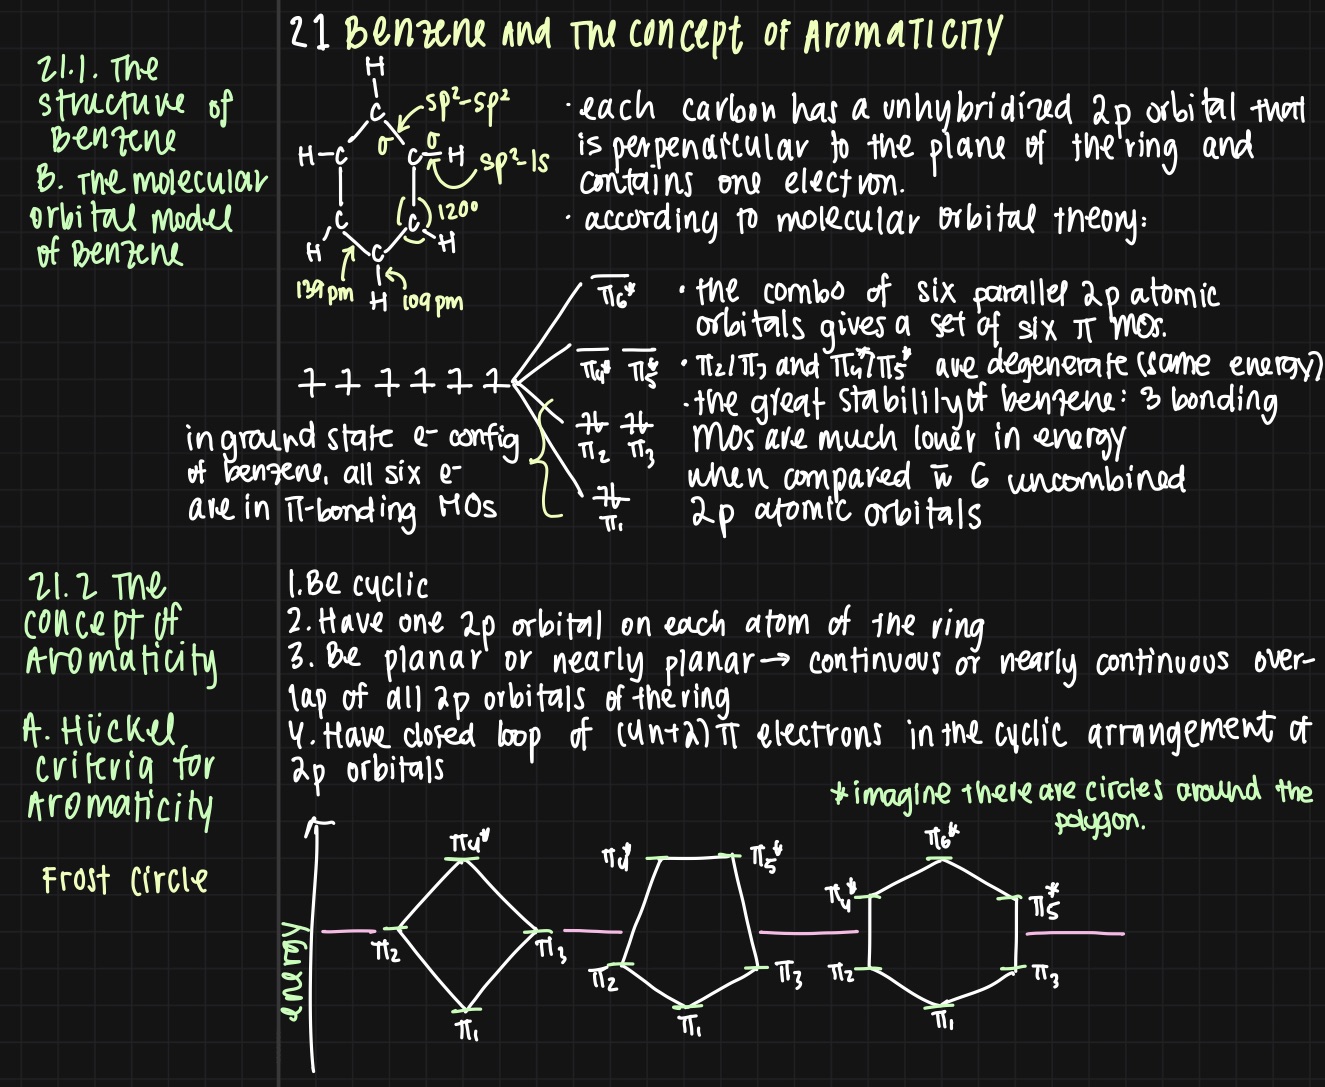 21 Benzene and The concept of Aromaticity
21.1. The
structure of
Benzene
B. The molecular
orbital model
of Benzene
H
C
sp²-sp²
σ
σ
H-C
C-H
sp²-1s
C
C
120°
H
C
H
139 pm
H
109 pm
· each carbon has a unhybridized 2p orbital that
is perpendicular to the plane of the ring and
contains one electron.
· according to molecular orbital theory:
π₆*
· the combo of six parallel 2p atomic
orbitals gives a set of six π MOs.
π₄* π₅*
· π₂/π₃ and π₄*/π₅* are degenerate (same energy)
· the great stability of benzene: 3 bonding
MOs are much lower in energy
when compared w 6 uncombined
2p atomic orbitals
π₂ π₃
π₁
in ground state e- config
of benzene, all six e-
are in π-bonding MOs
21.2 The
concept of
Aromaticity
1. Be cyclic
2. Have one 2p orbital on each atom of the ring
3. Be planar or nearly planar → continuous or nearly continuous over-
lap of all 2p orbitals of the ring
A. Hückel
criteria for
Aromaticity
4. Have closed loop of (4n+2) π electrons in the cyclic arrangement of
2p orbitals
*imagine there are circles around the
polygon.
Frost Circle
energy
π₄*
π₂
π₃
π₁
π₄*
π₅*
π₂
π₃
π₁
π₆*
π₄*
π₅*
π₂
π₃
π₁